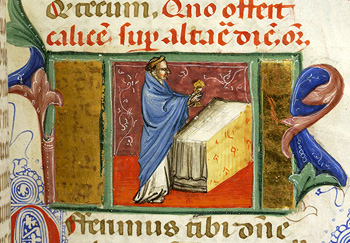 & tecum, Quo offert
calicē sup̄ altař dič, oř.
Offerimus tibi dn̄e